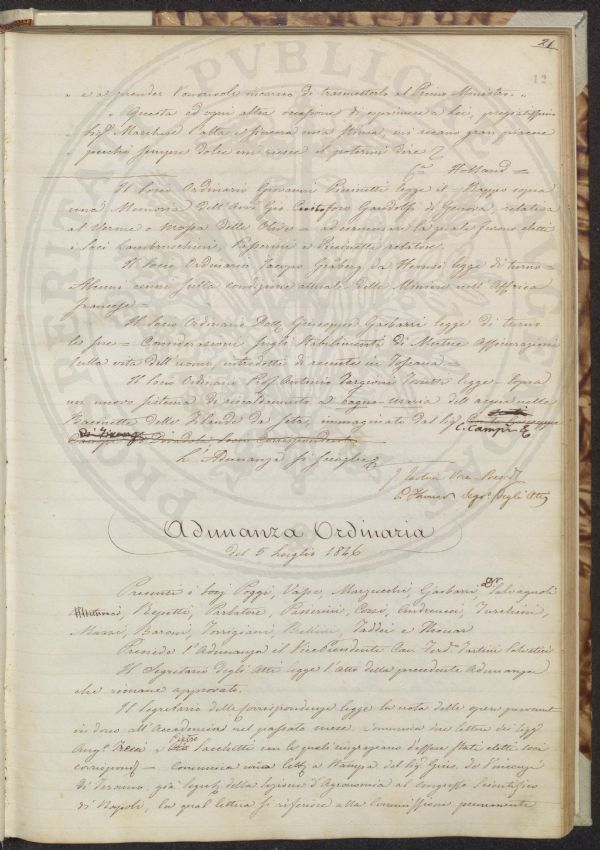 21
12
" e a prender l'onorevole incarico di trasmetterlo al Primo Ministro. "
" Questa ed ogni altra occasione di esprimere a Lei, pregiatissimo
" Sigr. Marchese l'alta e sincera mia stima, mi recano gran piacere
" perchè sempre dolce mi riesce il potermi dire
Holland =
Il Socio Ordinario Giovanni Piccinetti legge il = Rapporto sopra
una Memoria dell'Avv. Gio. Cristoforo Gandolfi di Genova, relativa
al Verme o Mosca delle Olive = ad esaminare la quale furono eletti
i Soci Lambruschini, Passerini e Piccinetti relatore.
Il Socio Ordinario Jacopo Gräberg da Hemsö legge di turno =
Alcuni cenni sulla condizione attuale delle Miniere nell'Affrica
francese =
Il Socio Ordinario Dott. Giuseppe Gasbarri legge di turno
le sue = Considerazioni sugli Stabilimenti di Mutue Assicurazioni
sulla vita dell'uomo introdotti di recente in Toscana =
Il Socio Ordinario Prof. Antonio Targioni Tozzetti legge = sopra
un nuovo sistema di riscaldamento a bagno-maria dell'acqua nelle
Bacinelle delle Filande da Seta, immaginato dal Sigr.
C. Campi
di Firenze
Socio Corrispondente
L'Adunanza si scioglie
F. Tartini Vice Presid.
P. Thouar Segro. degli Atti
Adunanza Ordinaria
del 5 Luglio 1846
Presenti i Socj Poggi, Vaspe, Marzucchi, Gasbarri, Dr. Salvagnoli
Repetti, Parlatore, Passerini, Cozzi, Andreucci, Turchini,
Mazzi, Baroni, Torrigiani, Bellini, Taddei e Thouar
Presiede l'Adunanza il Vice Presidente Cav. Ferdo. Tartini Salvatici
Il Segretario degli Atti legge l'Atto della precedente Adunanza
che rimane approvato.
Il Segretario delle Corrispondenze legge la nota delle opere pervenute
in dono all'Accademia nel passato mese. Comunica due lettere dei Sigg.
Angо. e Pietro Sacchetti con le quali ringraziano d'essere stati eletti soci
corrispond. = comunica una lettera a stampa del Sigr. Gius. de Vincenzi
di Teramo, già Segreto. della Sezione d'Agronomia al Congresso Scientifico
di Napoli, la qual lettera si riferisce alla Commissione permanente